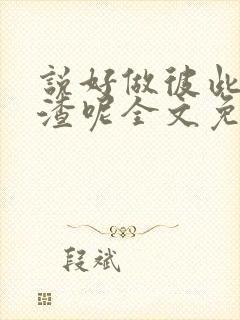 說好做彼此
渣呢全文免
段斌